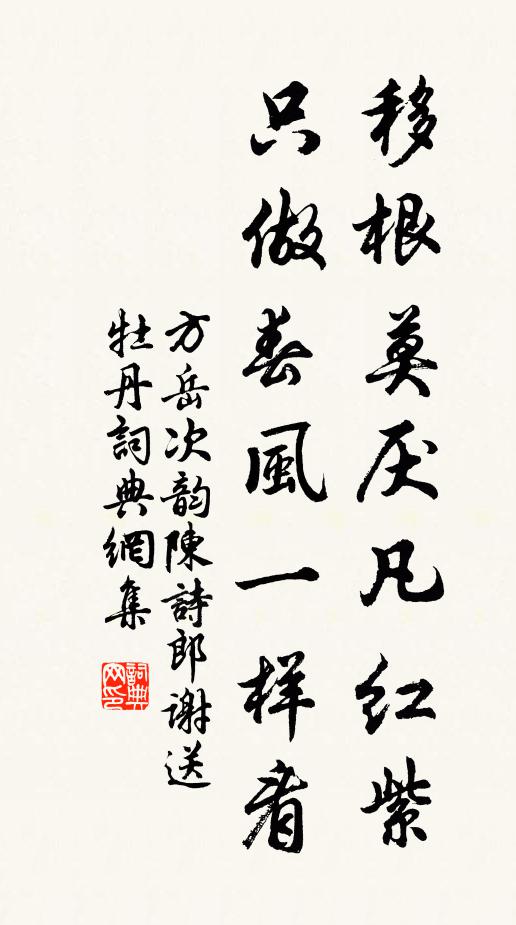 移根莫厌凡红紫
只做春風一样看
方岳次韵陳詩郎谢送
牡丹詞典網集
詞典网印